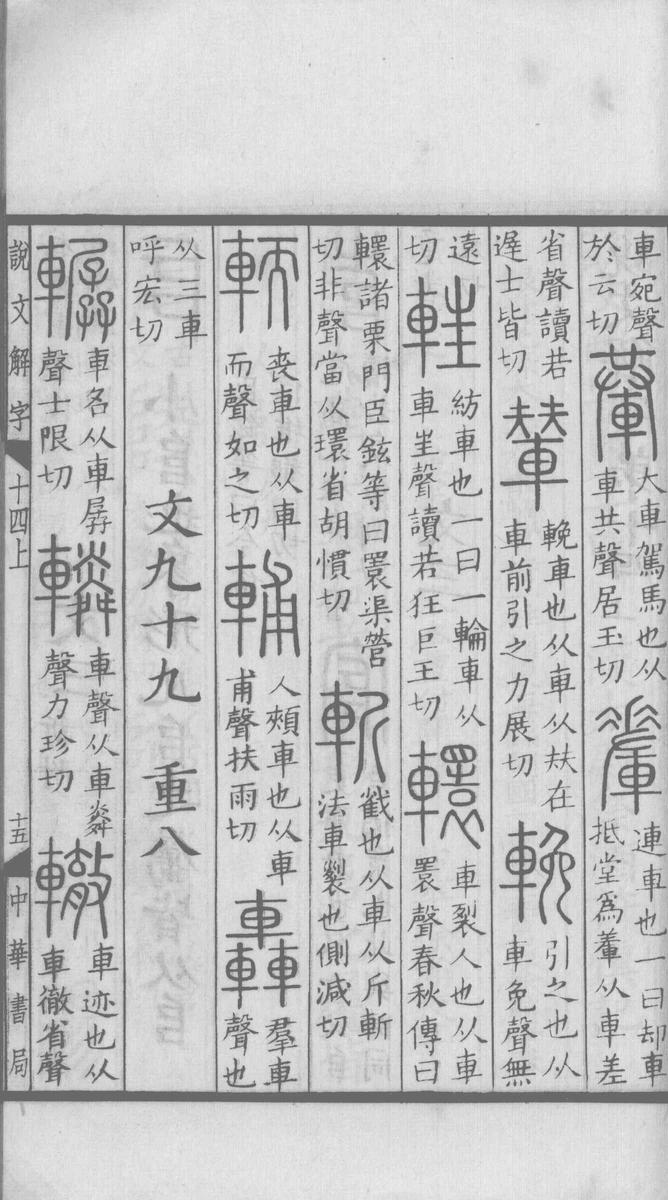 車宛聲
於云切
輂
大車駕馬也从
車共聲居玉切
𨍢
連車也一曰却車
抵堂爲𨍢从車差
省聲讀若
遟士皆切
輦
輓車也从車从㚘在
車前引之力展切
輓
引之也从
車免聲無
遠
切
軖
紡車也一曰一輪車从
車㞷聲讀若狂巨王切
轘
車裂人也从車
睘聲春秋傳曰
轘諸栗門臣鉉等曰睘渠營
切非聲當从環省胡慣切
斬
截也从車从斤斬
法車裂也側減切
輀
喪車也从車
而聲如之切
輔
人頰車也从車
甫聲扶雨切
轟
羣車
聲也
从三車
呼宏切
文九十九 重八
轏
車名从車孱
聲士限切
轔
車聲从車粦
聲力珍切
轍
車迹也从
車徹省聲
說文解字 十四上 十五 中華書局